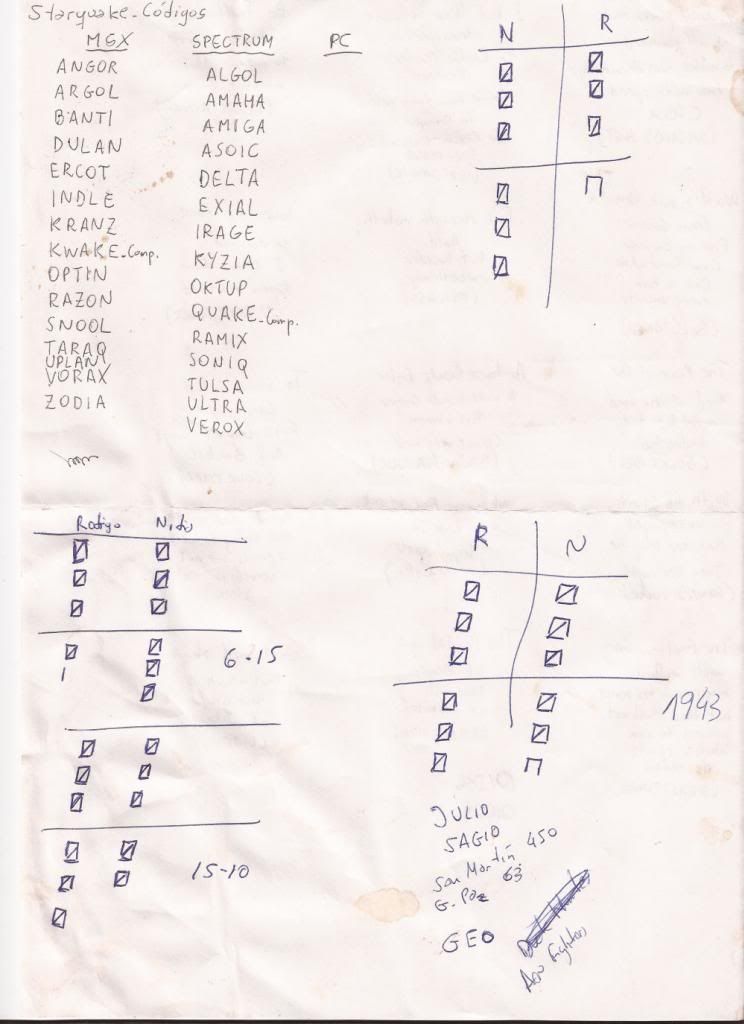 Starquake-Códigos
MSX SPECTRUM PC
ANGOR
ARGOL
BANTI
DULAN
ERCOT
INDLE
KRANZ
KWAKE-Comp.
OPTIN
RAZON
SNOOL
TARAQ
UPLAN
VORAX
ZODIA
ALGOL
AMAHA
AMIGA
ASOIC
DELTA
EXIAL
IRAGE
KYZIA
OKTUP
QUAKE-Comp.
RAMIX
SONIQ
TULSA
ULTRA
VEROX
N R
Rodrigo
6-15
15-10
R N
1943
JULIO
SAGIO
San Martín 450
G. Paz 63
GEO
Aero Fighters